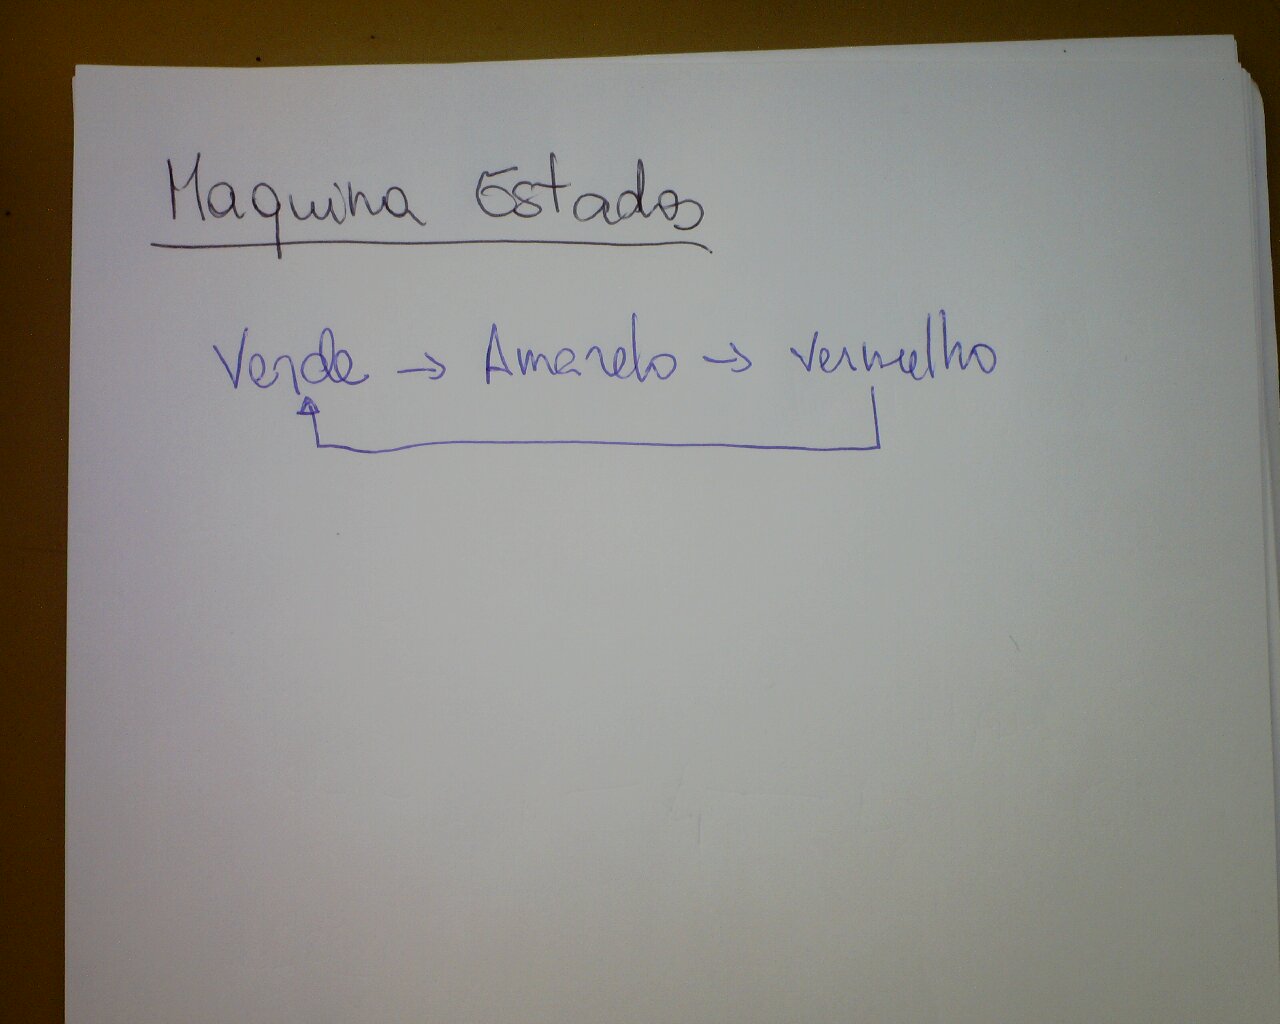 Maquina Estados
Verde → Amarelo → Vermelho